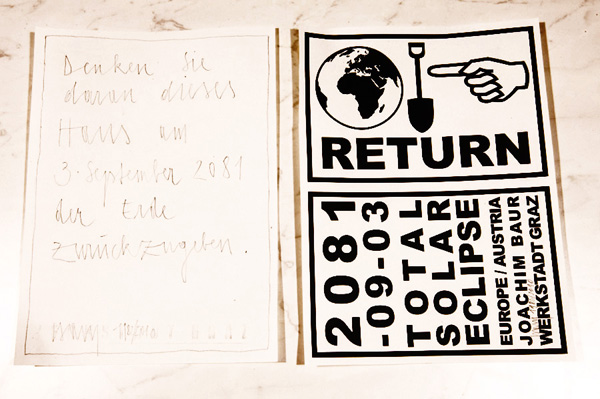 Denken Sie
daran dieses
Haus am
3. September 2081
der Erde
zurückzugeben.
RETURN
2081
-09-03
TOTAL
SOLAR
ECLIPSE
EUROPE/AUSTRIA
JOACHIM BAUR
WERKSTADT GRAZ